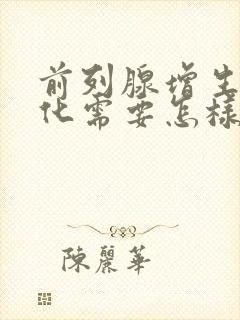 前列腺增生
化需要怎樣
陳麗華